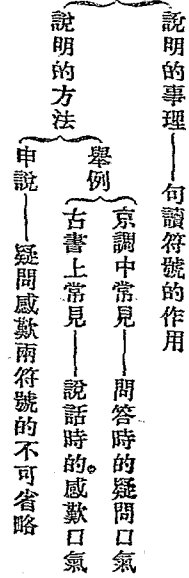 說明的事理——句讀符號的作用
說明的方法
舉例
京調中常見——問答時的疑問口氣
古書上常見——說話時的感歎口氣
申說——疑問感歎兩符號的不可省略